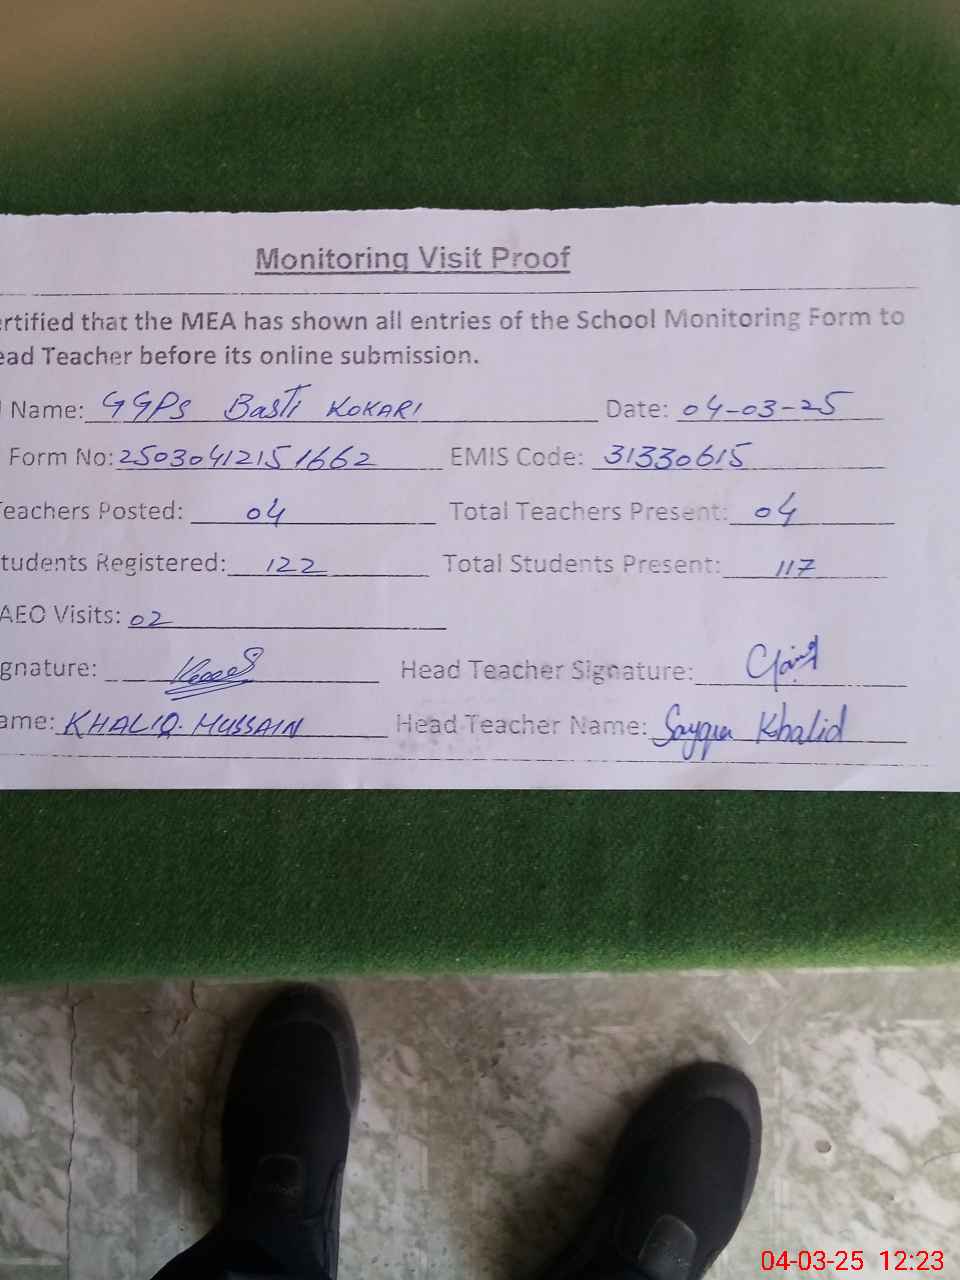 Monitoring Visit Proof
ertified that the MEA has shown all entries of the School Monitoring Form to
ead Teacher before its online submission.
l Name: GGPS Basti KOKARI Date: 04-03-25
Form No: 25030412151662 EMIS Code: 31330615
Teachers Posted: 04 Total Teachers Present: 04
tudents Registered: 122 Total Students Present: 117
AEO Visits: 02
gnature: Head Teacher Signature:
ame: KHALIQ. HUSSAIN Head Teacher Name: Sayqa Khalid
04-03-25 12:23